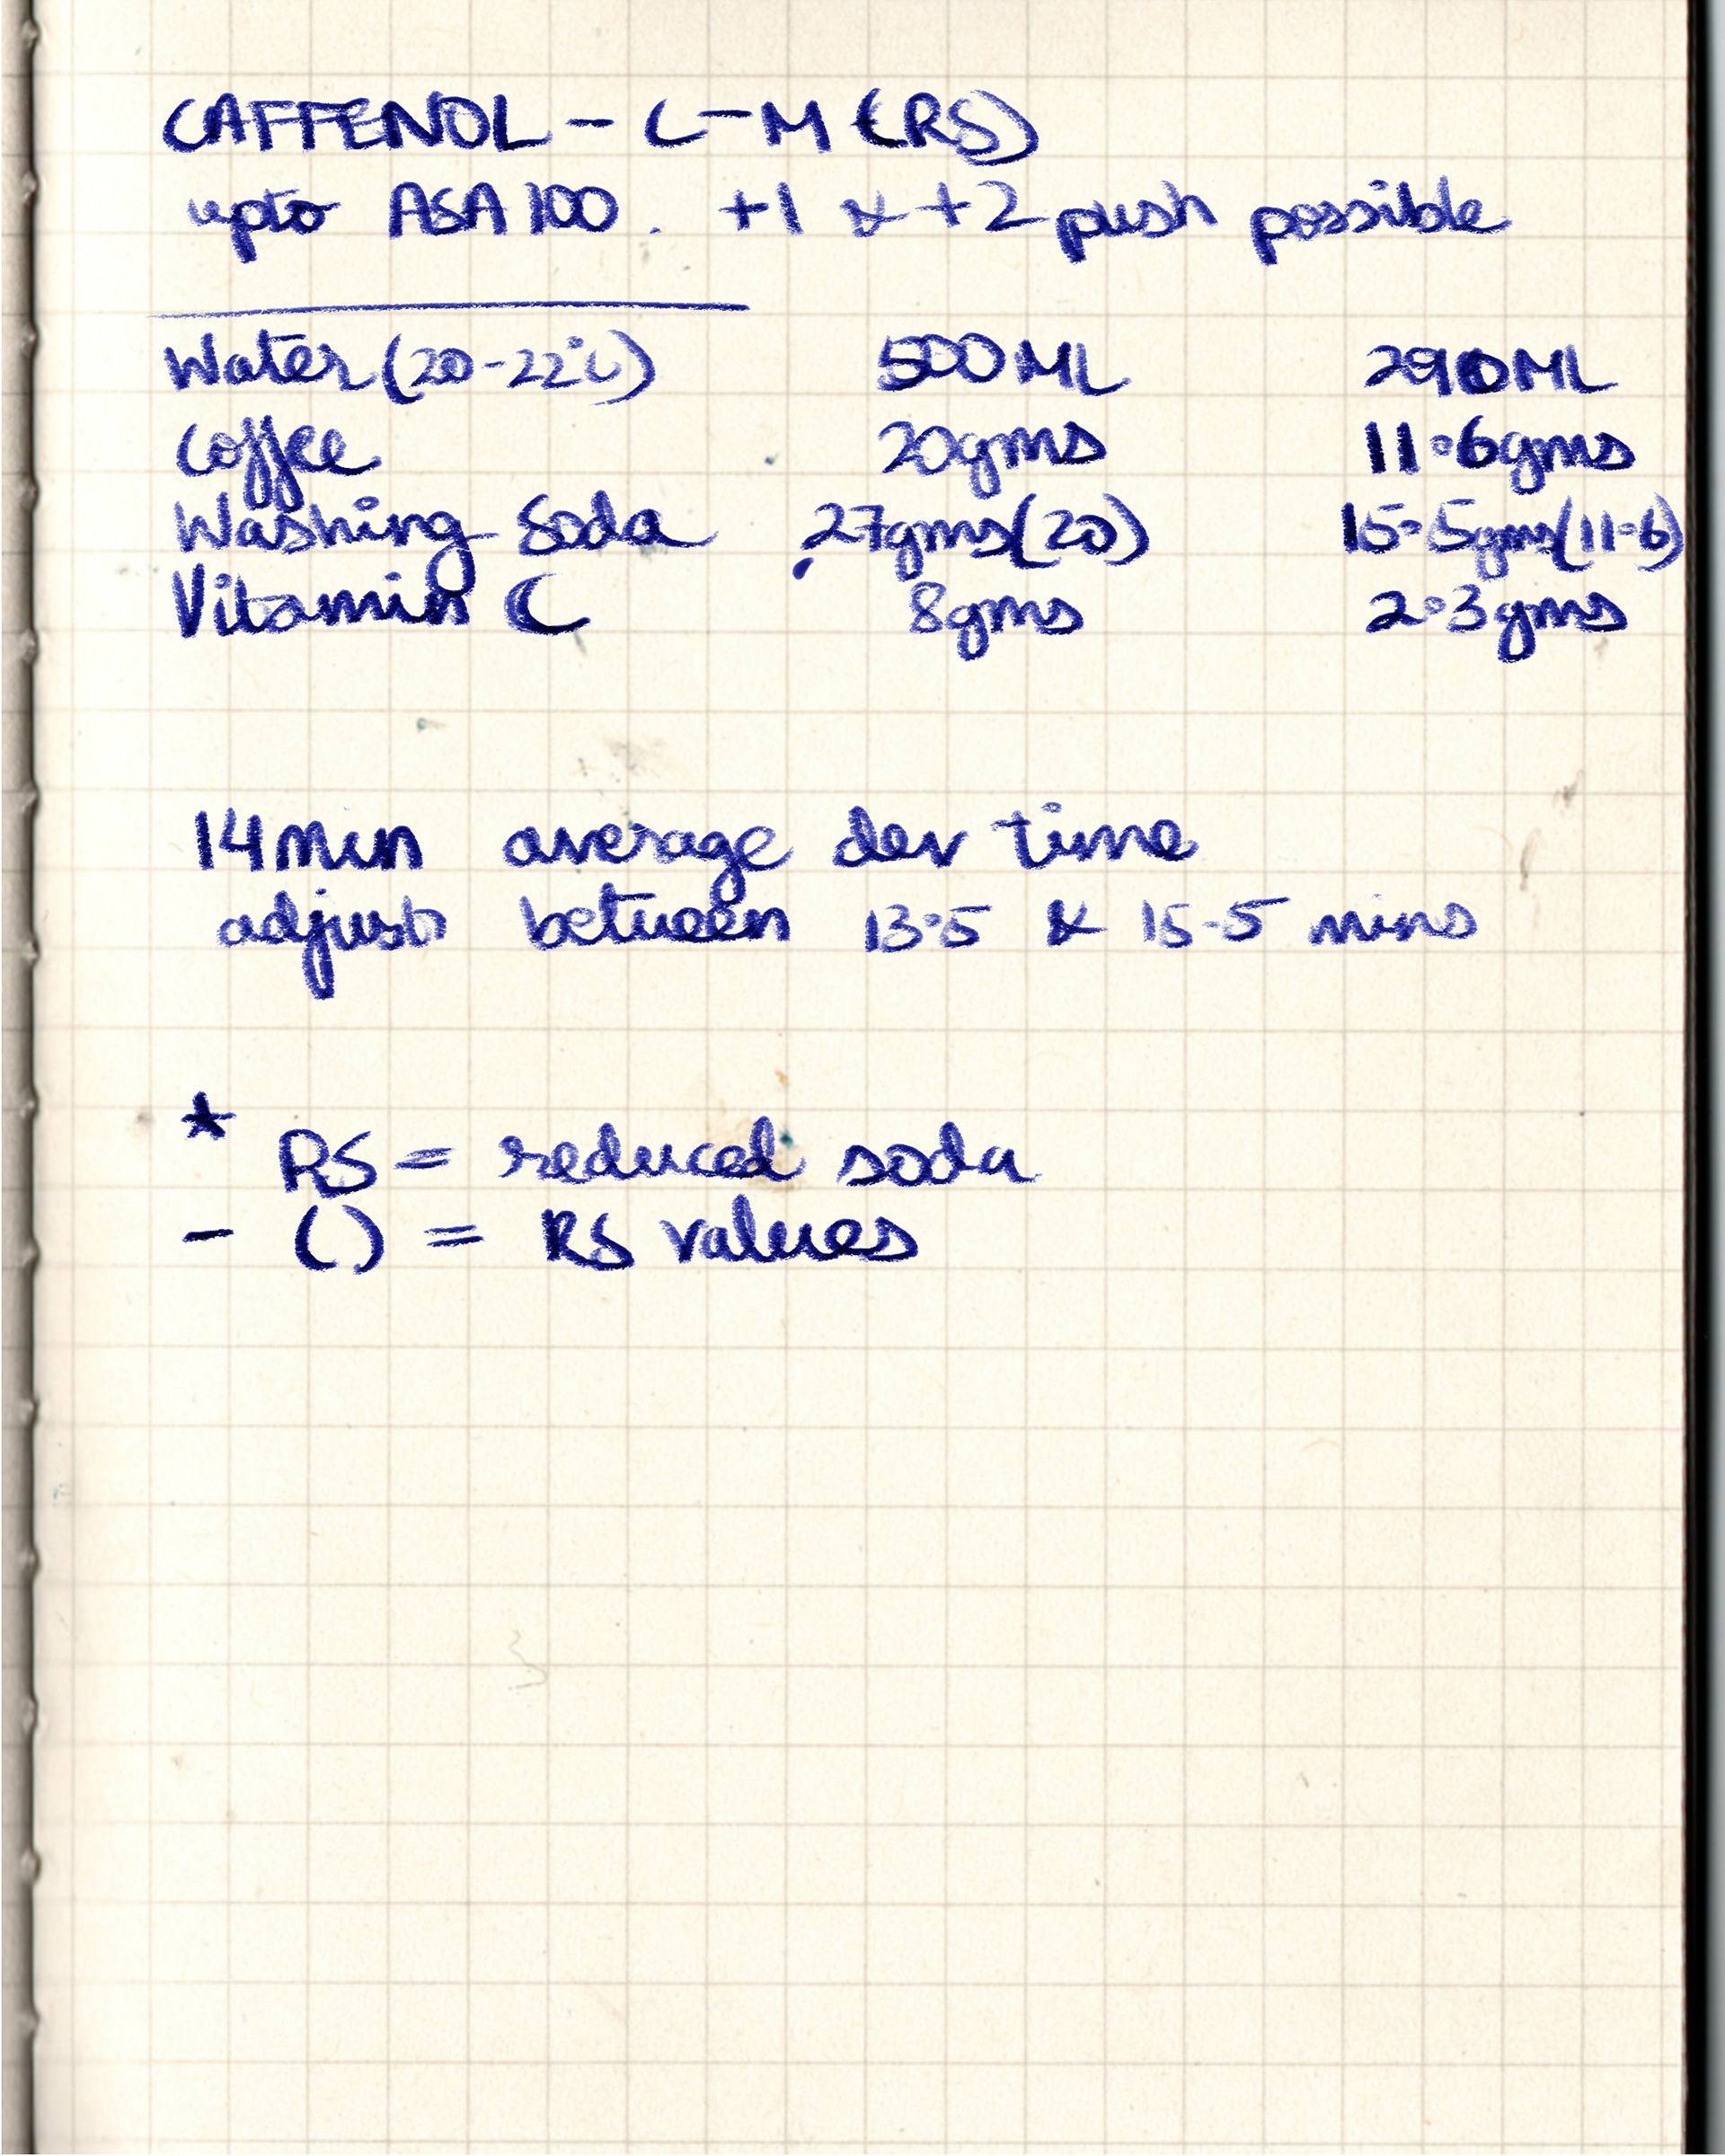 CAFFENOL - C-M (RS)
upto ASA 100. +1 & +2 push possible
Water (20-22°C) 500ML 290ML
Coffee 20gms 11.6gms
Washing Soda 27gms(20) 15.5gms(11.6)
Vitamin C 8gms 2.3gms
14min average dev time
adjust between 13.5 & 15.5 mins
* RS = reduced soda
- () = RS values